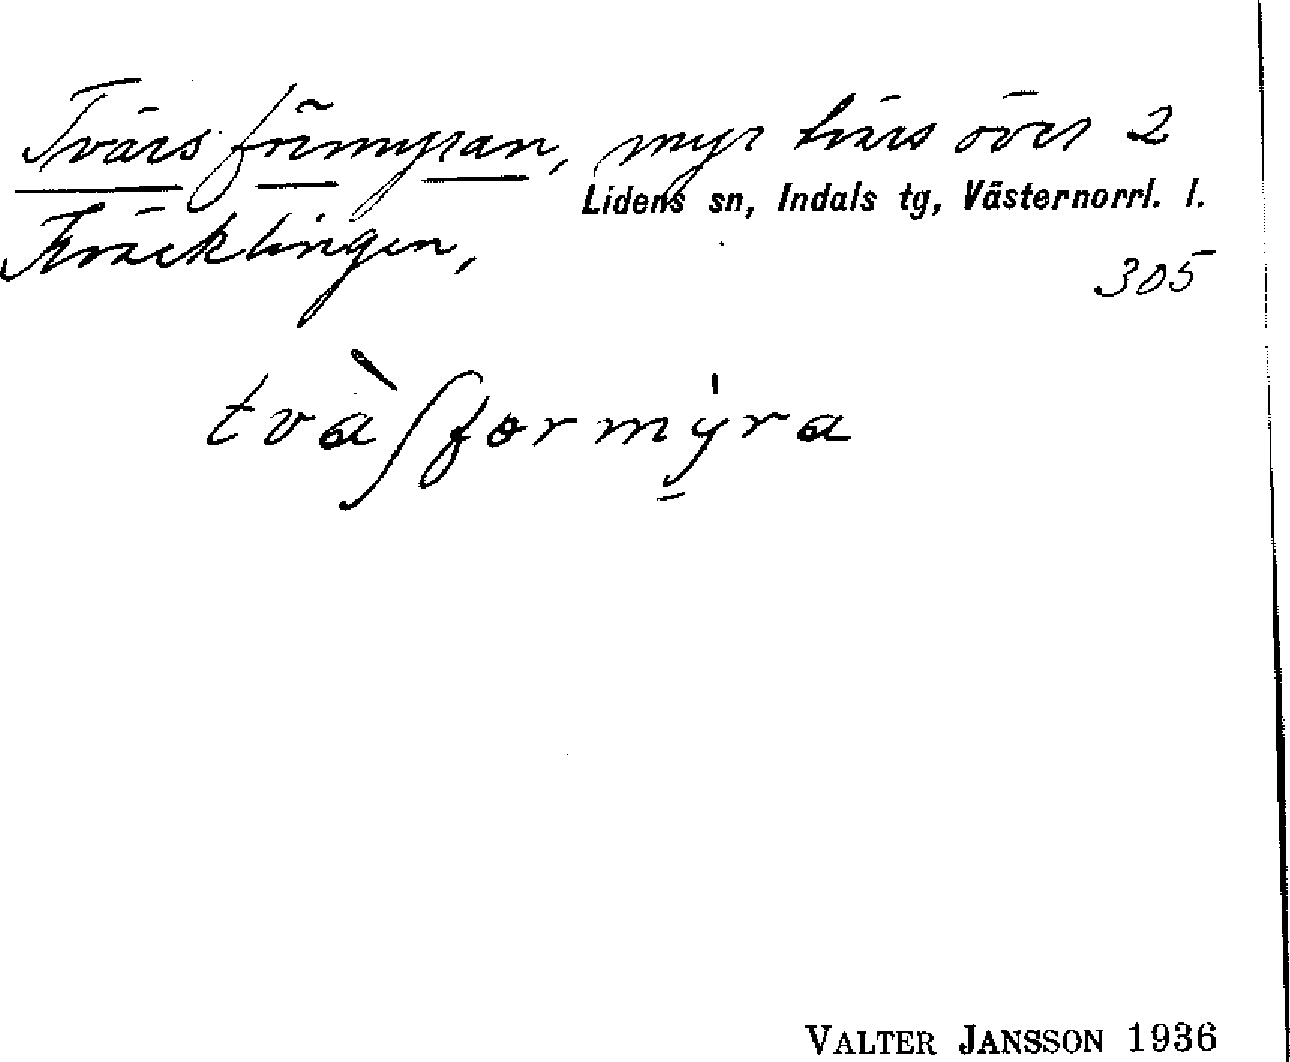 Tvärsförmyran, myr tvärs över 2
Lidens sn, Indals tg, Västernorrl. l.
Kväcklingen,
305
tvàʃformýra
VALTER JANSSON 1936